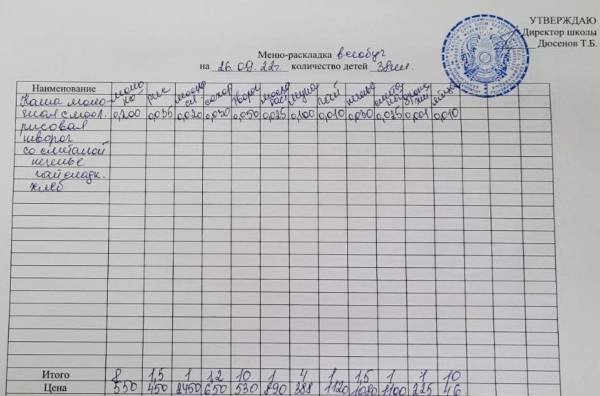 УТВЕРЖДАЮ
Директор школы
Дюсенов Т.Б.
Меню-раскладка всеобуч
на 26.09.22г. количество детей 38чел.
Наименование моло-ко рис масло сл сахар творог масло раст мука чай печенье
Каша моло-
чная с масл. 0,200 0,035 0,020 0,050 0,050 0,025 0,100 0,010 0,030 0,025 0,001 0,010
рисовая
творог
со сметаной
печенье
чай сладк.
хлеб
Итого 8 1,5 1 1,2 10 1 4 1 1,5 1 1 10
Цена 550 450 2450 650 530 890 388 1120 1080 1100 225 46